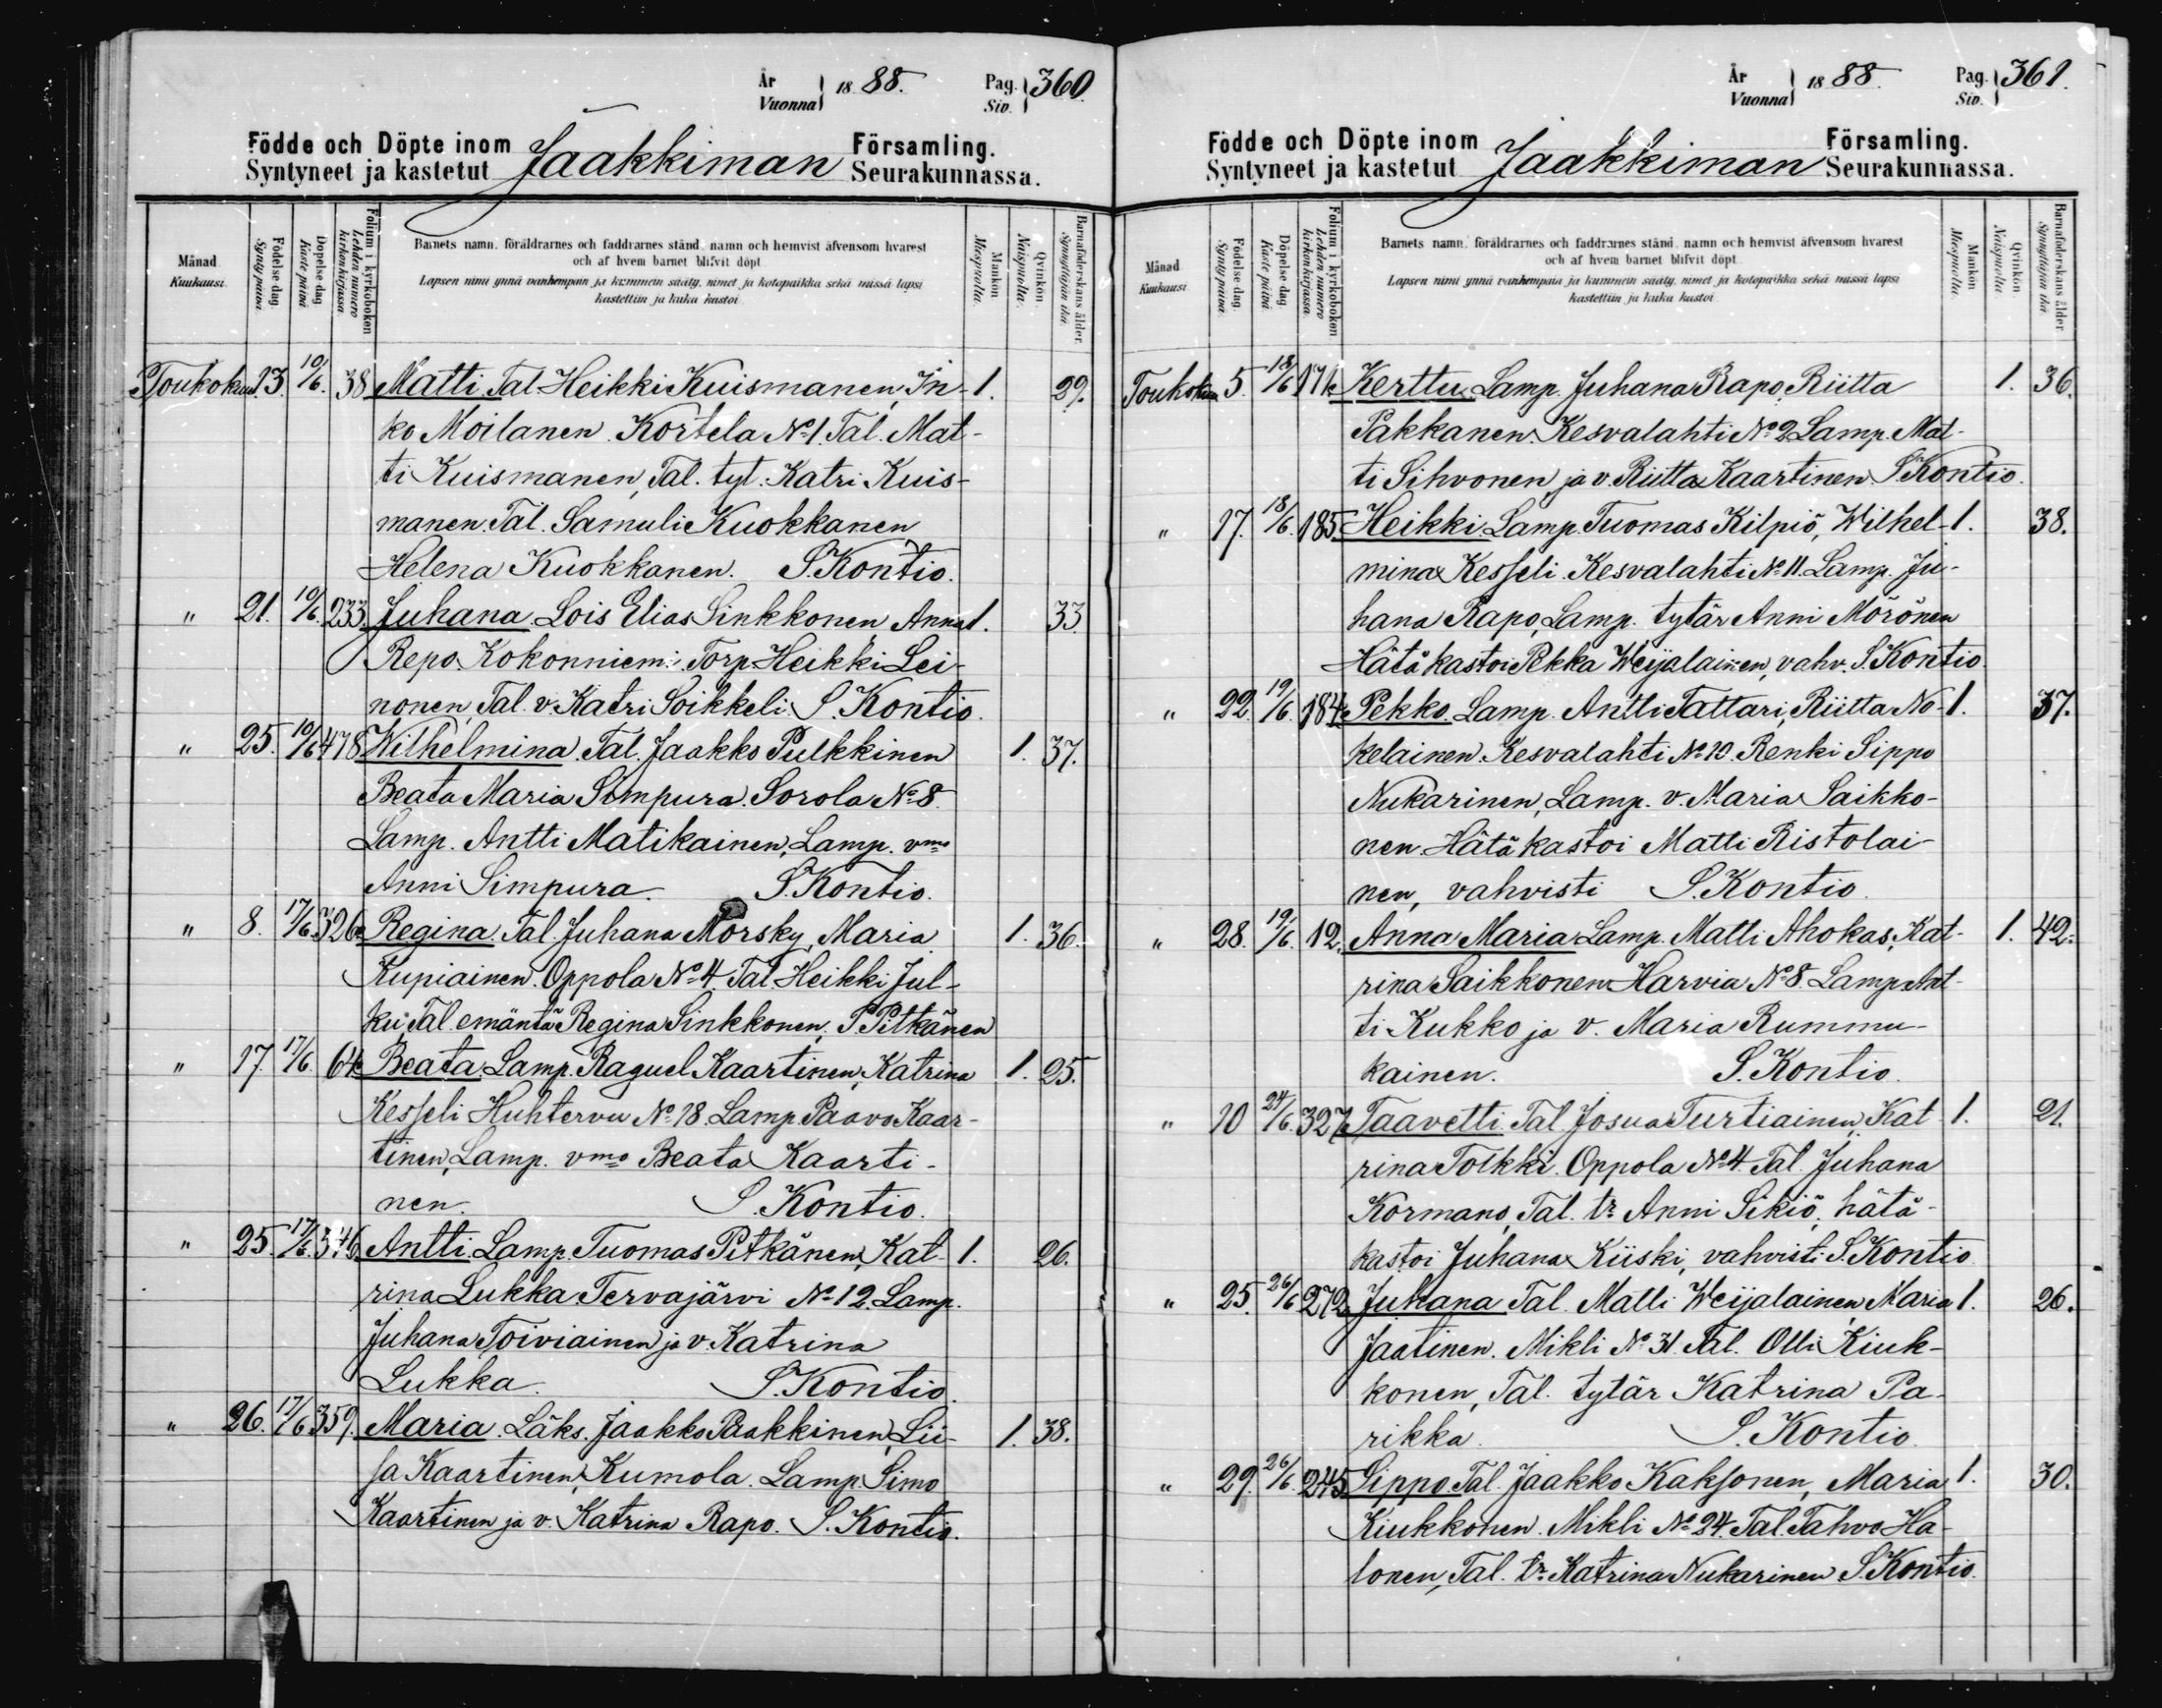 År
Vuonna 1888. Pag.
Siv. 360.
Födde och Döpte inom
Syntyneet ja kastetut Jaakkiman Församling.
Seurakunnassa.
Månad
Kuukausi.
Födelse dag.
Synty päivä.
Döpelse dag
Kaste päivä
Folium i kyrkoboken
Lehden numero
kirkonkirjassa.
Barnets namn, föräldrarnes och faddrarnes stånd, namn och hemvist äfvensom hvarest
och af hvem barnet blifvit döpt
Lapsen nimi ynnä vanhempain ja kummein sääty, nimet ja kotopaikka sekä missä lapsi
kastettiin ja kuka kastoi
Mankön
Miespuolta.
Qvinkön
Naispuolta.
Barnaföderskans ålder.
Synnyttäjän ikä
Toukokuu 13. 10/6. 38 Matti Tal. Heikki Kuismanen, In- 1. 29.
ko Moilanen. Kortela No 1. Tal. Mat-
ti Kuismanen, Tal. tyt. Katri Kuis-
manen. Tal. Samuli Kuokkanen,
Helena Kuokkanen. S. Kontio.
" 21. 10/6. 233. Juhana Lois Elias Sinkkonen Anna 1. 33
Repo. Kokonniemi. Torp. Heikki Lei-
nonen, Tal. v. Katri Soikkeli. S. Kontio.
" 25. 10/6 478 Wilhelmina. Tal. Jaakko Pulkkinen 1. 37.
Beata Maria Simpura. Sorola No 8.
Lamp. Antti Matikainen, Lamp. vmo
Anni Simpura. S. Kontio.
" 8. 17/6. 326. Regina. Tal. Juhana Mörsky, Maria 1. 36.
Kupiainen. Oppola No 4. Tal. Heikki Jul-
ku, Tal. emäntä Regina Sinkkonen, P. Pitkänen
" 17. 17/6. 64. Beata. Lamp. Raguel Kaartinen, Katrina 1. 25.
Kesseli Huhtervu No 18. Lamp. Paavo Kaar-
tinen, Lamp. vmo Beata Kaarti-
nen. S. Kontio.
" 25. 17/6. 546. Antti. Lamp. Tuomas Pitkänen, Kat- 1. 26.
rina Lukka. Tervajärvi No 12. Lamp.
Juhana Toiviainen ja v. Katrina
Lukka. S. Kontio.
" 26. 17/6 359. Maria. Läks. Jaakko Paakkinen, Lii- 1. 38.
sa Kaartinen, Kumola. Lamp. Simo
Kaartinen ja v. Katrina Rapo. S. Kontio.
År
Vuonna 1888. Pag.
Siv. 361.
Födde och Döpte inom
Syntyneet ja kastetut Jaakkiman Församling.
Seurakunnassa.
Månad
Kuukausi
Födelse dag.
Synty päivä.
Döpelse dag
Kaste päivä
Folium i kyrkoboken
Lehden numero
kirkonkirjassa.
Barnets namn, föräldrarnes och faddrarnes stånd, namn och hemvist äfvensom hvarest
och af hvem barnet blifvit döpt.
Lapsen nimi ynnä vanhempain ja kummein sääty, nimet ja kotopaikka sekä missä lapsi
kastettiin ja kuka kastoi
Mankön
Miespuolta.
Qvinkön
Naispuolta
Barnaföderskans ålder
Synnyttäjän ikä
Toukokuu 5. 18/6 174. Kerttu. Lamp. Juhana Rapo, Riitta 1. 36.
Pakkanen. Kesvalahti No 2 Lamp. Mat-
ti Sihvonen ja v. Riitta Kaartinen. S. Kontio.
" 17. 18/6. 185. Heikki. Lamp. Tuomas Kilpiö, Wilhel- 1. 38.
mina Kesseli. Kesvalahti No 11. Lamp. Ju-
hana Rapo, Lamp. tytär Anni Mörönen
Hätäkastoi Pekka Weijalainen, vahv. S. Kontio
" 22. 19/6. 184. Pekko. Lamp. Antti Tattari, Riitta No- 1. 37.
kelainen. Kesvalahti No 10. Renki Sippo
Nukarinen, Lamp. v. Maria Saikko-
nen. Hätäkastoi Matti Ristolai-
nen, vahvisti S. Kontio.
" 28. 19/6. 12. Anna Maria Lamp. Matti Ahokas, Kat- 1. 42.
rina Saikkonen. Harvia No 8. Lamp. Ant-
ti Kukko ja v. Maria Rummu-
kainen. S. Kontio.
" 10 24/6. 327. Taavetti. Tal. Josua Turtiainen, Kat 1. 21.
rina Tolkki. Oppola No 4. Tal. Juhana
Kormano, Tal. tr Anni Sikiö, hätä-
kastoi Juhana Kiiski, vahvisti S. Kontio
" 25. 26/6 272. Juhana. Tal. Matti Weijalainen, Maria 1. 26.
Jaatinen. Mikli No 31. Tal. Olli Kiuk-
konen, Tal. tytär Katrina Pa-
rikka. S. Kontio.
" 29. 26/6. 245. Sippo. Tal. Jaakko Kaksonen, Maria 1. 30.
Kiukkonen. Mikli No 24. Tal. Tahvo Ha-
lonen, Tal. tr Katrina Nukarinen S. Kontio.